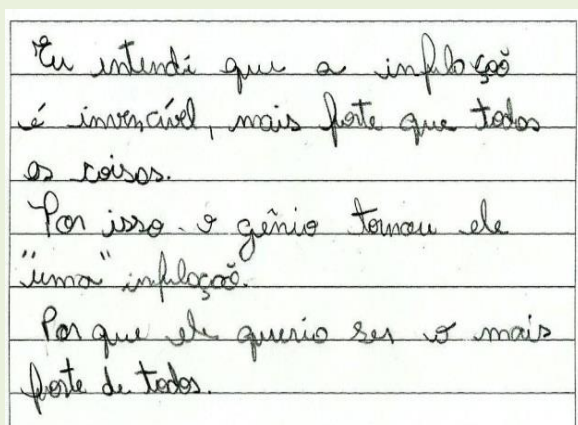 Eu intendi que a infloçoõ
é invencível, mais forte que todas
as coisas.
Por isso o gênio tornou ele
"uma" infloçoõ.
Por que ele queria ser o mais
forte de todos.